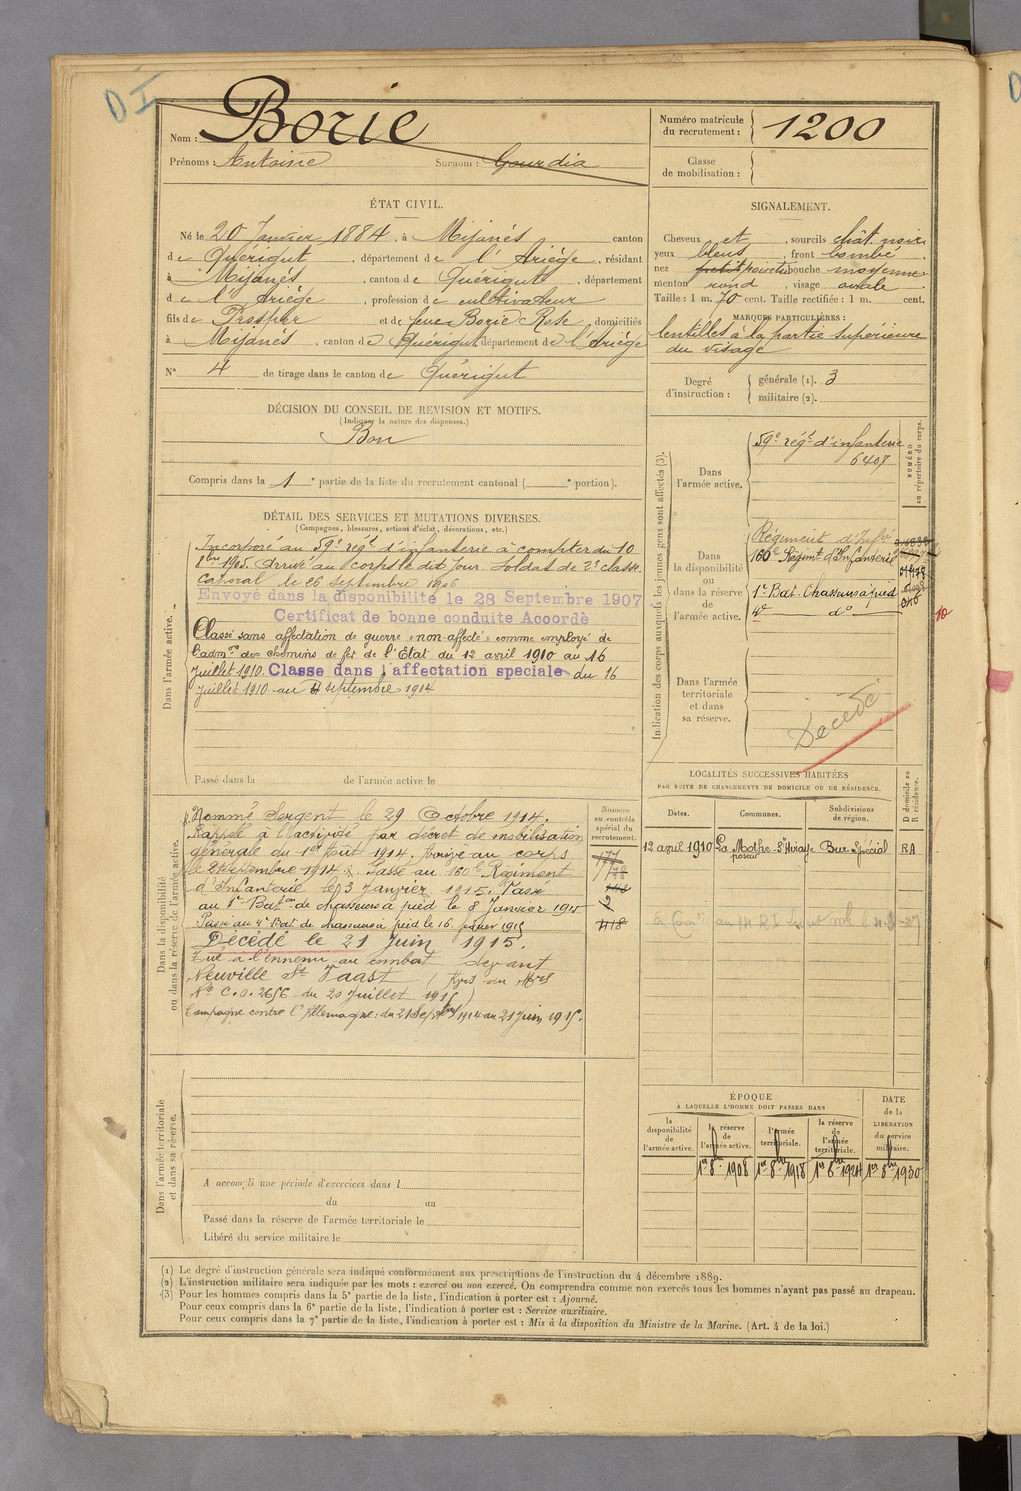 D I
Nom : Borie
Prénoms : Antoine Surnom : Gourdia
Numéro matricule du recrutement : 1200
Classe de mobilisation :
ÉTAT CIVIL.
Né le 20 Janvier 1884, à Mijanés canton
de Quérigut, département de l'Ariége, résidant
à Mijanés, canton de Quérigut, département
de l'Ariége, profession de cultivateur
fils de Prosper et de feue Borie Rose, domiciliés
à Mijanés, canton de Quérigut département de l'Ariége
N° 4 de tirage dans le canton de Quérigut
SIGNALEMENT.
Cheveux et, sourcils chât. noir
yeux bleus, front bombé
nez petit pointu bouche moyenne
menton rond, visage ovale
Taille : 1 m. 70 cent. Taille rectifiée : 1 m. cent.
MARQUES PARTICULIÈRES :
lentilles à la partie supérieure
du visage
Degré d'instruction : générale (1). 3
militaire (2).
DÉCISION DU CONSEIL DE REVISION ET MOTIFS.
(Indiquer la nature des dispenses.)
Bon
Compris dans la 1e partie de la liste du recrutement cantonal ( e portion).
DÉTAIL DES SERVICES ET MUTATIONS DIVERSES.
(Campagnes, blessures, actions d'éclat, décorations, etc.)
Dans l'armée active.
Incorporé au 59e régt d'infanterie à compter du 10
1bre 1905. Arrivé au corps le dit jour. Soldat de 2e classe
Caporal le 26 septembre 1906
Envoyé dans la disponibilité le 28 Septembre 1907
Certificat de bonne conduite Accordé
Classé sans affectation de guerre "non-affecté" comme employé de
l'admon des chemins de fer de l'État du 12 avril 1910 au 16
Juillet 1910. Classé dans l'affectation spéciale du 16
Juillet 1910 au 4 septembre 1914
Passé dans la de l'armée active le
Indication des corps auxquels les jeunes gens sont affectés (3).
NUMÉRO au répertoire du corps.
Dans l'armée active.
59e régt d'infanterie
6407
Dans la disponibilité ou dans la réserve de l'armée active.
Régiment d'Infie
160e Régimt d'Infanterie
1er Bat. Chasseurs à pied
4e do
10
Dans l'armée territoriale et dans sa réserve.
Décédé
Dans la disponibilité ou dans la réserve de l'armée active.
Nommé Sergent le 29 Octobre 1914.
Rappelé à l'activité par décret de mobilisation
générale du 1er Août 1914. Arrivé au corps
le 21 septembre 1914. Passé au 160e Régiment
d'Infanterie le 3 Janvier 1915. Passé
au 1er Baton de chasseurs à pied le 8 Janvier 1915
Passé au 4e Bat. de chasseurs à pied le 16 février 1915
Décédé le 21 Juin 1915.
Tué à l'ennemi au combat devant
Neuville St Vaast
No C.O. 2656 du 20 Juillet 1915)
Campagne contre l'Allemagne : du 21 Septbre 1914 au 21 Juin 1915.
Numéro au contrôle spécial du recrutement.
2
418
LOCALITÉS SUCCESSIVES HABITÉES
PAR SUITE DE CHANGEMENTS DE DOMICILE OU DE RÉSIDENCE.
Dates. Communes. Subdivisions de région. D domicile ou R résidence.
12 avril 1910 La Mothe-St Avraye Bur. Spécial RA
poseur
Dans l'armée territoriale et dans sa réserve.
A accompli une période d'exercices dans l
du au
Passé dans la réserve de l'armée territoriale le
Libéré du service militaire le
ÉPOQUE
À LAQUELLE L'HOMME DOIT PASSER DANS
la disponibilité de l'armée active.
la réserve de l'armée active.
l'armée territoriale.
la réserve de l'armée territoriale.
DATE de la LIBÉRATION du service militaire.
1er 8bre 1908 1er 8bre 1918 1er 8bre 1924 1er 8bre 1930
(1) Le degré d'instruction générale sera indiqué conformément aux prescriptions de l'instruction du 4 décembre 1889.
(2) L'instruction militaire sera indiquée par les mots : exercé ou non exercé. On comprendra comme non exercés tous les hommes n'ayant pas passé au drapeau.
(3) Pour les hommes compris dans la 5e partie de la liste, l'indication à porter est : Ajourné.
Pour ceux compris dans la 6e partie de la liste, l'indication à porter est : Service auxiliaire.
Pour ceux compris dans la 7e partie de la liste, l'indication à porter est : Mis à la disposition du Ministre de la Marine. (Art. 4 de la loi.)